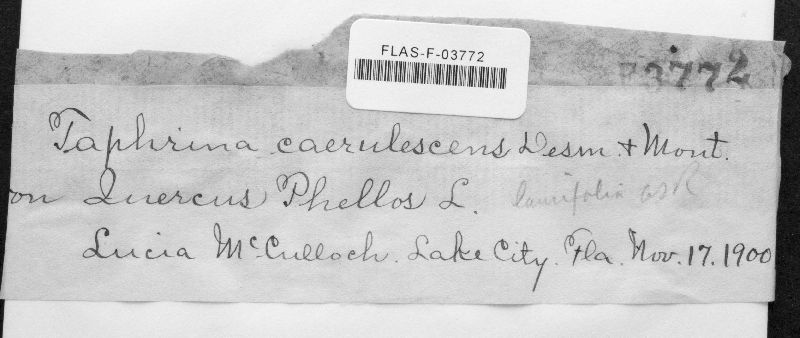 FLAS-F-03772
F3772
Taphrina caerulescens Desm. & Mont.
on Quercus Phellos L. laurifolia
Lucia McCulloch. Lake City. Fla. Nov. 17. 1900